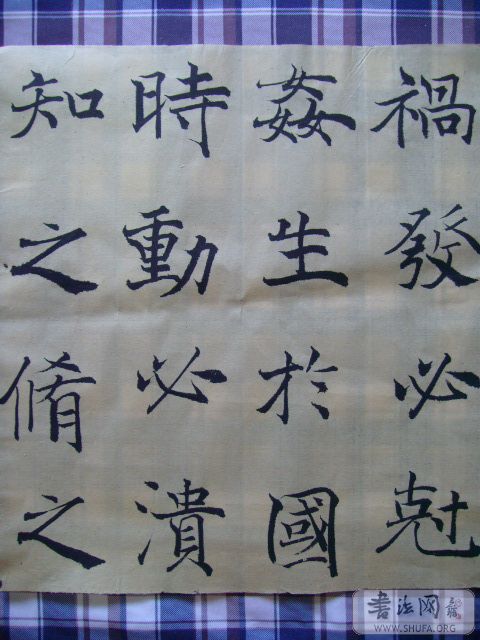 禍發必尅
姦生於國
時動必潰
知之脩之
書法网
WWW.SHUFA.ORG